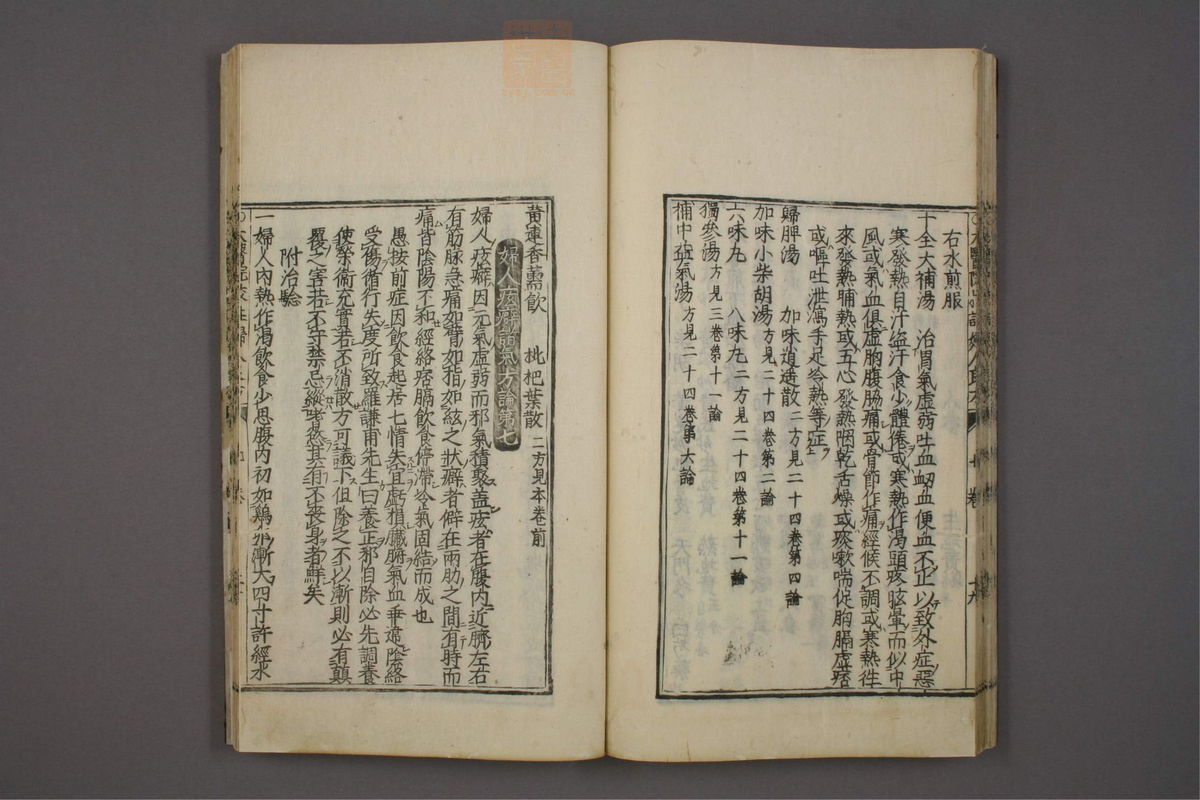 右水煎服
十全大補湯　治胃氣虛弱吐血衂血便血不止以致外症惡
寒發熱自汗盗汗食少體倦或寒熱作渴頭疼眩暈而似中
風或氣血俱虛胸腹脇痛或骨節作痛經候不調或寒熱徃
來發熱晡熱或五心發熱咽乾舌燥或痰嗽喘促胸膈虛痞
或嘔吐泄瀉手足冷熱等症
歸脾湯　加味逍遙散二方見二十四卷第四論
加味小柴胡湯方見二十四卷第二論
六味丸　八味丸二方見二十四卷第十一論
獨參湯方見三卷第十一論
補中益氣湯方見二十四卷第六論
黄連香薷飲　枇杷葉散二方見本卷前
婦人痃癖諸氣方論第七
婦人痃癖因元氣虛弱而邪氣積聚蓋痃者在腹內近臍左右
有筋脉急痛如臂如指如絃之狀癖者僻在兩肋之間有時而
痛皆陰陽不和經絡痞膈飲食停滯冷氣固結而成也
愚按前症因飲食起居七情失宜虧損臟腑氣血乖違陰絡
受傷循行失度所致羅謙甫先生曰養正邪自除必先調養
使榮衛充實若不消散方可議下但除之不以漸則必有顛
覆之害若不守禁忌縱嗜慾其有不喪身者鮮矣
附治驗
一婦人內熱作渴飲食少思腹內初如鷄卵漸大四寸許經水